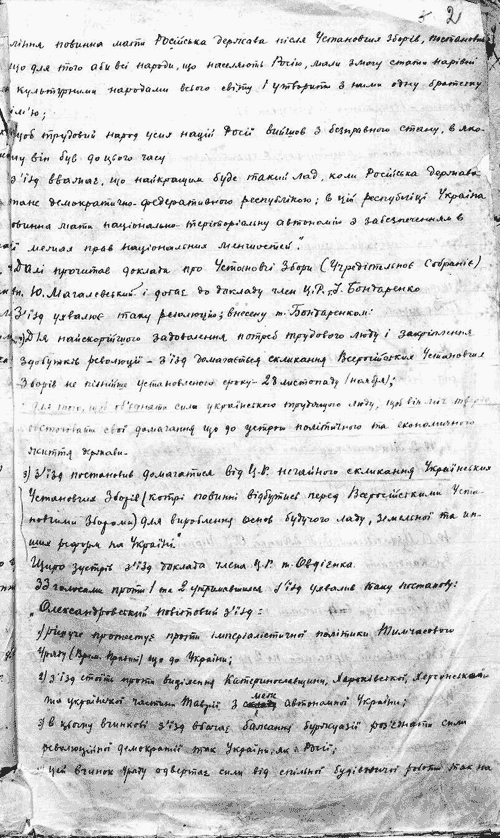 2
ління повинна мати Російська держава після Установчих Зборів, постановив
що для того аби всі народи, що населяють Росію, мали змогу стати нарівні
культурними народами всього світу і утворити з ними одну братську
ім'ю;
щоб трудовий народ усих націй Росії вийшов з безправного стану, в яко-
му він був до цього часу
з'їзд вважає, що найкращим буде такий лад, коли Російська держава
стане демократично-федеративною республікою; в цій республіці Україна
повинна мати національно-територіальну автономію з забезпеченням в
межах прав національних меншостей."
Далі прочитав доклада про Установчі Збори (Учредітєльноє Собраніє)
Ю. Магалевський і додає до докладу член Ц.Р. т. Бондаренко
З'їзд ухвалює таку резолюцію, внесену т. Бондаренком:
Для найскорійшого задоволення потреб трудового люду і закріплення
здобутків революції - з'їзд домагається скликання Всеросійських Установчих
Зборів не пізнійше установленого сроку - 28 листопаду (ноября);
для того, щоб об'єднати сили українського трудящого люду, щоб він міг
свої домагання що до устрою політичного та економичного
життя держави.
3) З'їзд постановив домагатися від Ц.Р. негайного скликання Українських
Установчих Зборів (котрі повинні відбутись перед Всеросійськими Уста-
новчими Зборами) для вироблення основ будучого ладу, земельної та ин-
ших реформ на Україні."
Щиро зустрів з'їзд доклада члена Ц.Р. т. Овдієнка.
33 голосами проти 1 та 2 утримавшихся з'їзд ухвалив таку постанову:
„Олександровський повітовий з'їзд:
1) рішуче протестує проти імперіалістичної політики Тимчасового
Уряду (Врем. Правит) що до України;
2) з'їзд стоїть проти виділення Катеринославщини, Харківської, Херсонської
та української частини Таврії з меж автономної України;
3) в цьому вчинкові з'їзд вбачає бажання буржуазії роз'єднати сили
революційної демократії так України, як і Росії;
цей вчинок уряду одвертає сили від спільної будівничої роботи так на